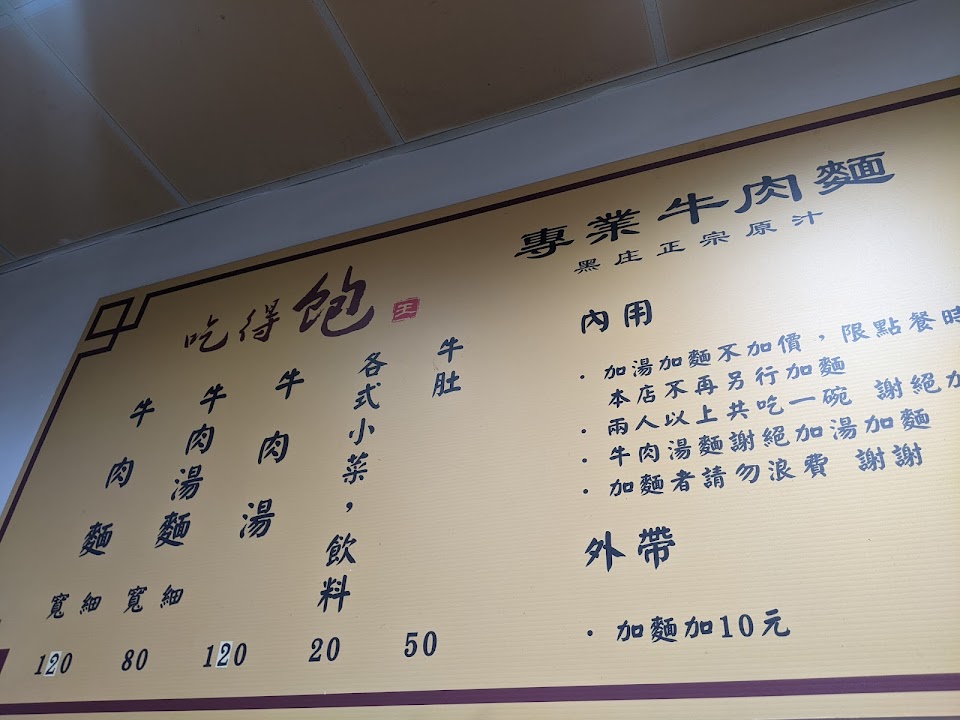 吃得飽
王
牛肉麵 寬 細 120
牛肉湯麵 寬 細 80
牛肉湯 120
各式小菜，飲料 20
牛肚 50
專業牛肉麵
黑庄正宗原汁
內用
·加湯加麵不加價，限點餐時
本店不再另行加麵
·兩人以上共吃一碗 謝絕加
·牛肉湯麵謝絕加湯加麵
·加麵者請勿浪費 謝謝
外帶
·加麵加10元